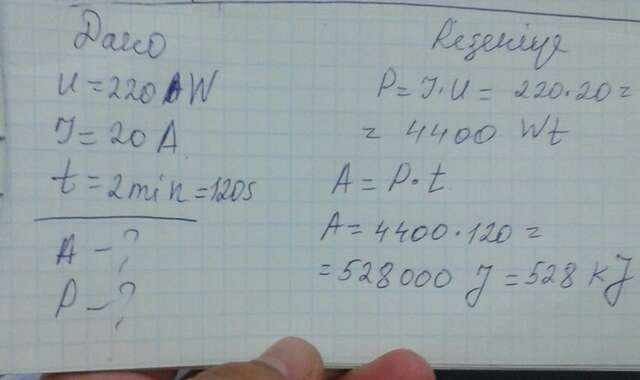 Dano
U = 220 W
I = 20 A
t = 2 min = 120s
A - ?
P - ?
Reşeniýe
P = I · U = 220 · 20 =
= 4400 Wt
A = P · t
A = 4400 · 120 =
= 528000 J = 528 kJ